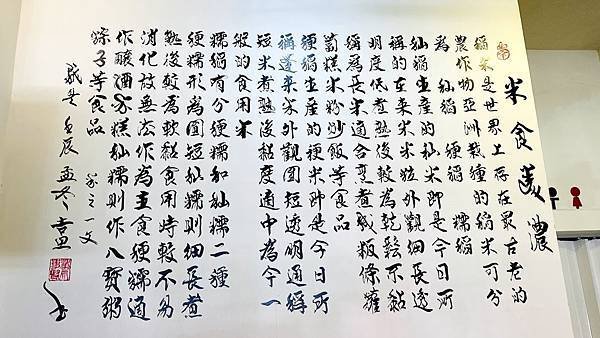 米食美濃
稻米是世界上存在最古老的
農作物亞洲栽種的稻米可分
為 籼稻 粳稻 糯稻
籼稻生產的籼米即是今日所
稱的在來米米粒外觀細長透
明度低煮熟後較為乾鬆不黏
稱為長米適合煮成粄條蘿
蔔糕米粉炒飯等食品
粳稻生產的粳米即是今日所
稱蓬萊米外觀圓短透明通稱
短米煮熟後黏度適中為今一
般的食用米
糯稻有分粳糯和籼糯二種
粳糯形為圓短籼糯則細長煮
熟後較為軟黏食用時較不易
消化故無法作為主食粳糯適
作釀酒米糕籼糯則作八寶粥
粽子等食品
歲是壬辰孟冬